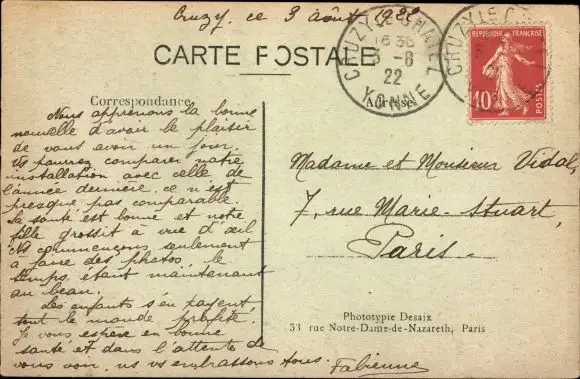 Cruzy, ce 3 août 1922
CARTE POSTALE
CRUZY-LE-CHATEL
16 30
3 - 8
22
YONNE
CRUZY LE C
REPUBLIQUE FRANÇAISE
10c
POSTES
Correspondance
Adresse
Nous apprenons la bonne
nouvelle d'avoir le plaisir
de vous avoir un jour.
Vs pourrez comparer notre
installation avec celle de
l'année dernière, ce n'est
presque pas comparable.
La santé est bonne et notre
fille grossit à vue d'œil
Ns commençons seulement
à faire des photos, le
temps étant maintenant
au beau.
Les enfants s'en payent
tout le monde profite.
Je vous espère en bonne
santé et dans l'attente de
vous voir, ns vs embrassons tous. Fabienne
Madame et Monsieur Vidal,
7, rue Marie-Stuart,
Paris.
Phototypie Desaix
33 rue Notre-Dame-de-Nazareth, Paris